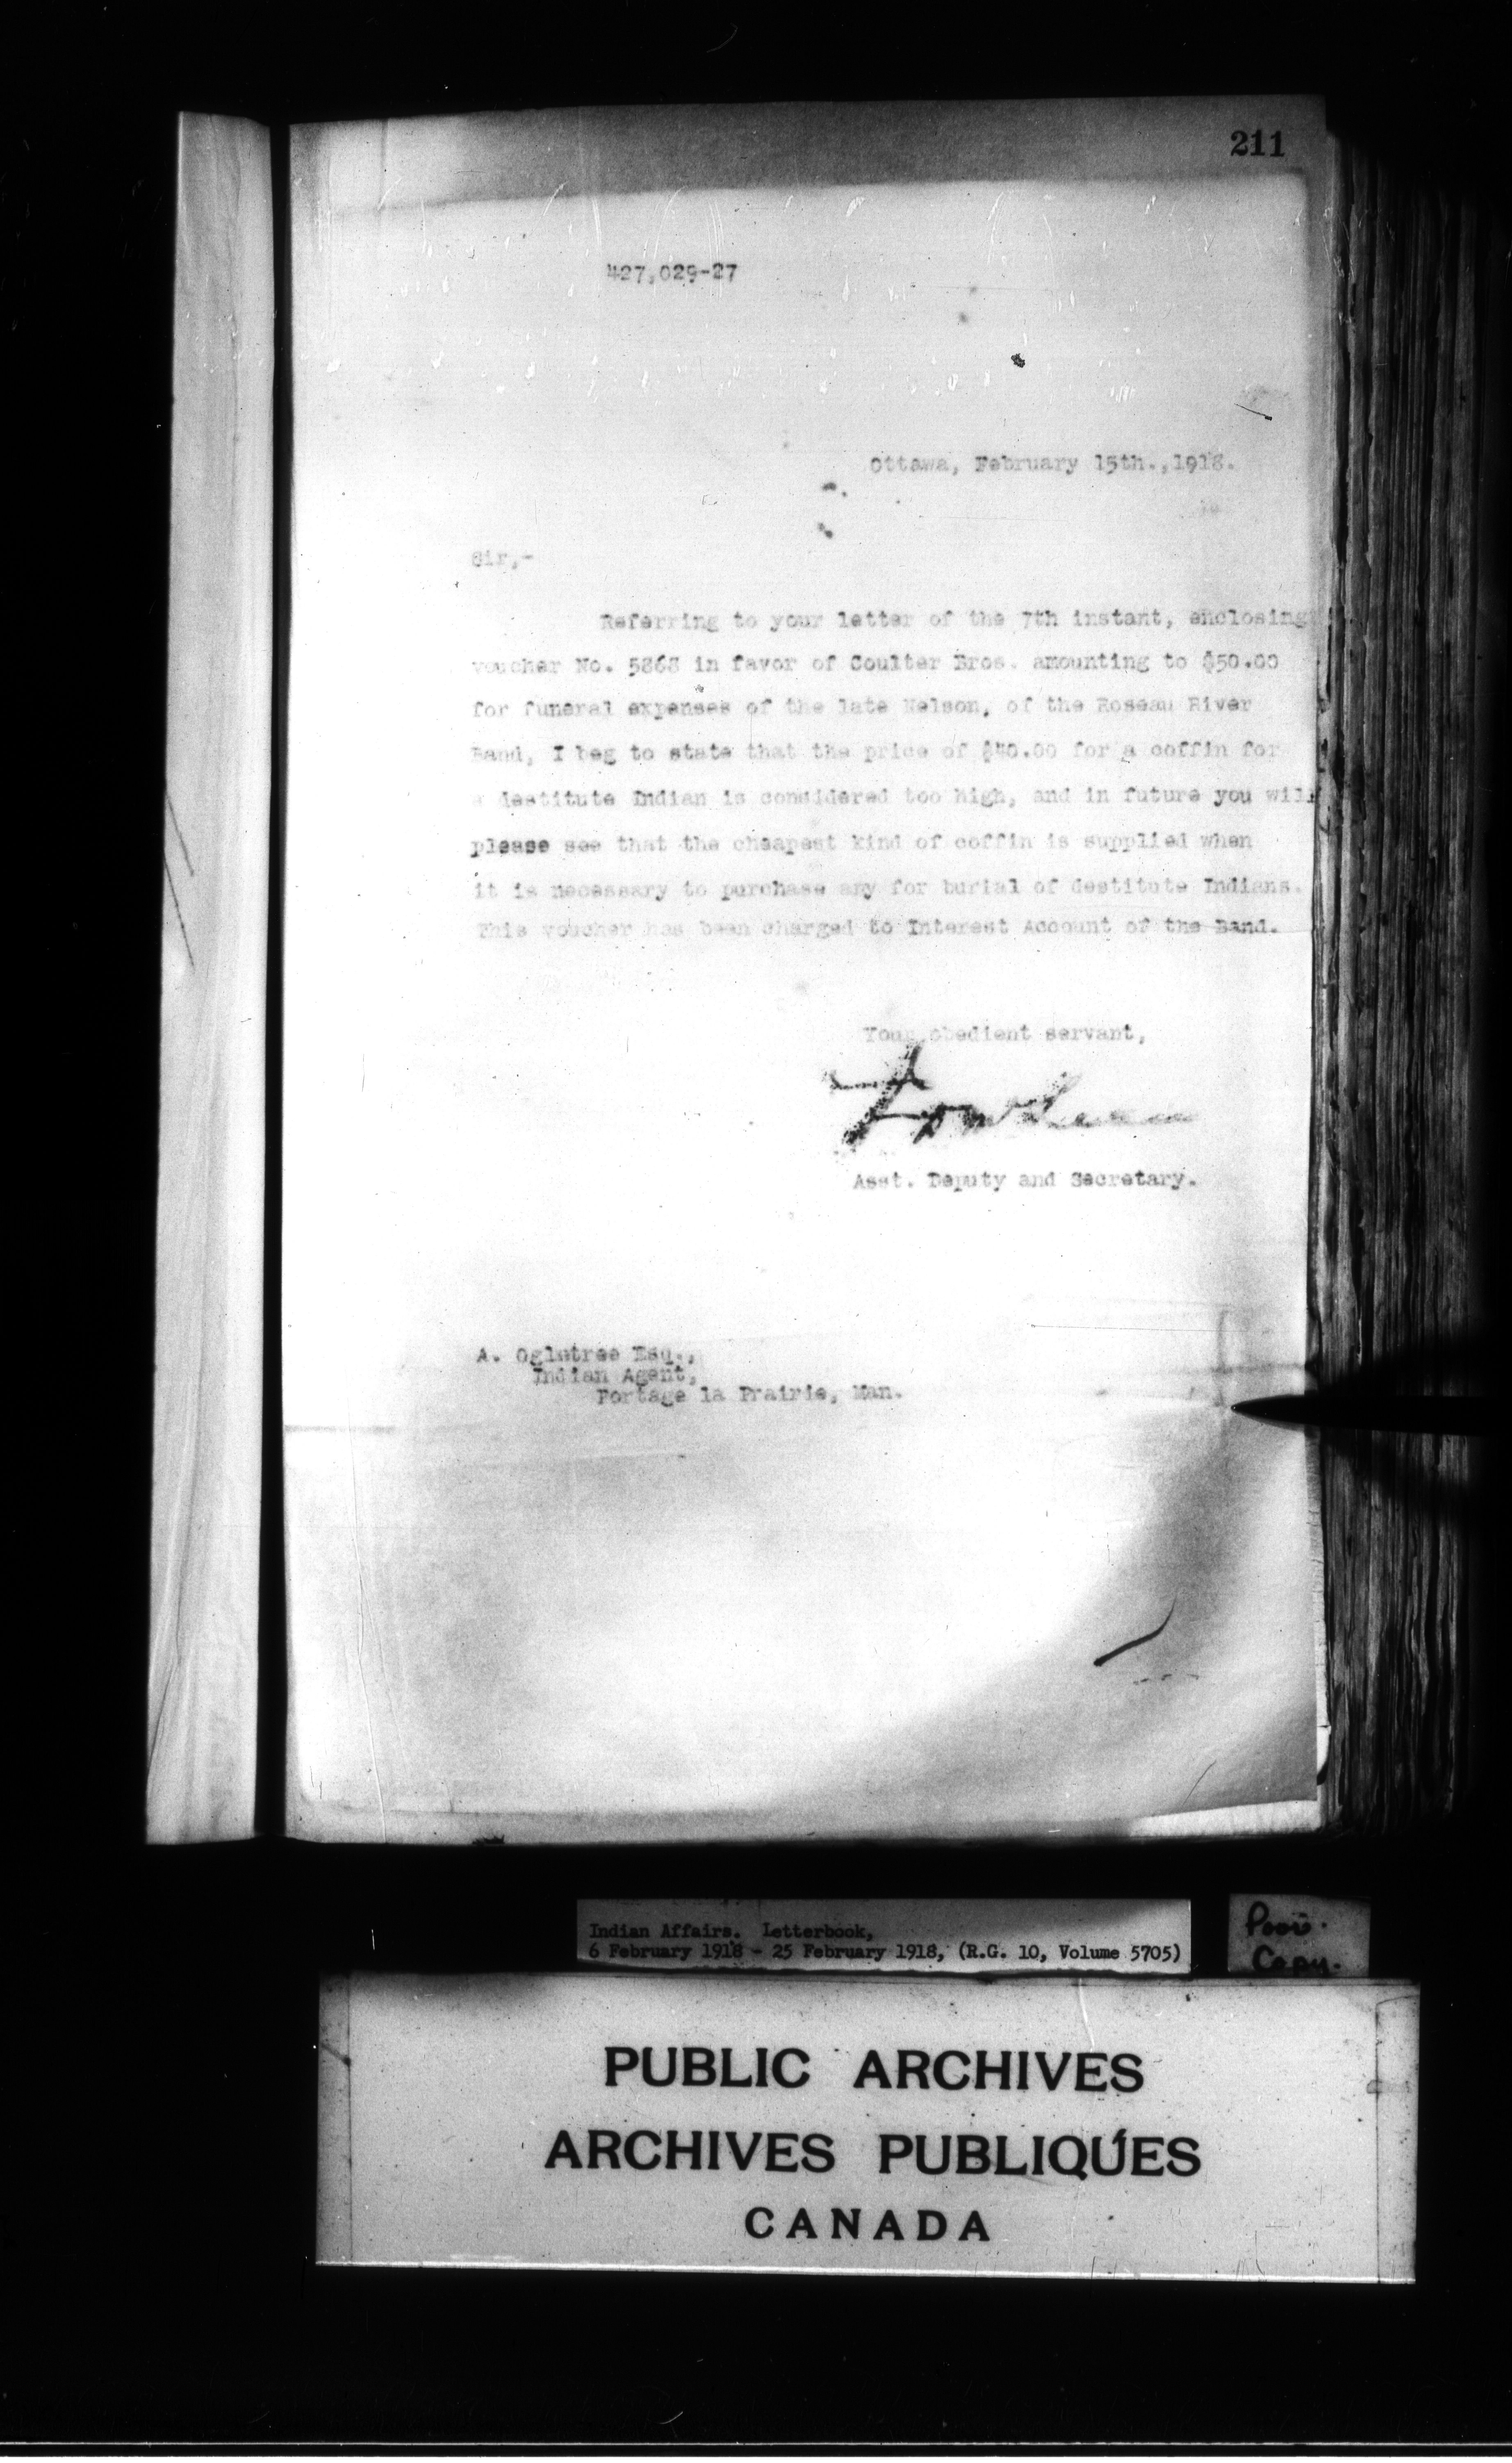 211
427,029-27
Ottawa, February 15th.,1918.
Sir,-
Referring to your letter of the 7th instant, enclosing
voucher No. 5868 in favor of Coulter Bros. amounting to $50.00
for funeral expenses of the late Nelson, of the Roseau River
Band, I beg to state that the price of $40.00 for a coffin for
a destitute Indian is considered too high, and in future you will
please see that the cheapest kind of coffin is supplied when
it is necessary to purchase any for burial of destitute Indians.
This voucher has been charged to Interest Account of the Band.
Your obedient servant,
Asst. Deputy and Secretary.
A. Ogletree Esq.,
Indian Agent,
Portage la Prairie, Man.
Indian Affairs. Letterbook,
6 February 1918 - 25 February 1918, (R.G. 10, Volume 5705)
Poor
Copy.
PUBLIC ARCHIVES
ARCHIVES PUBLIQUES
CANADA